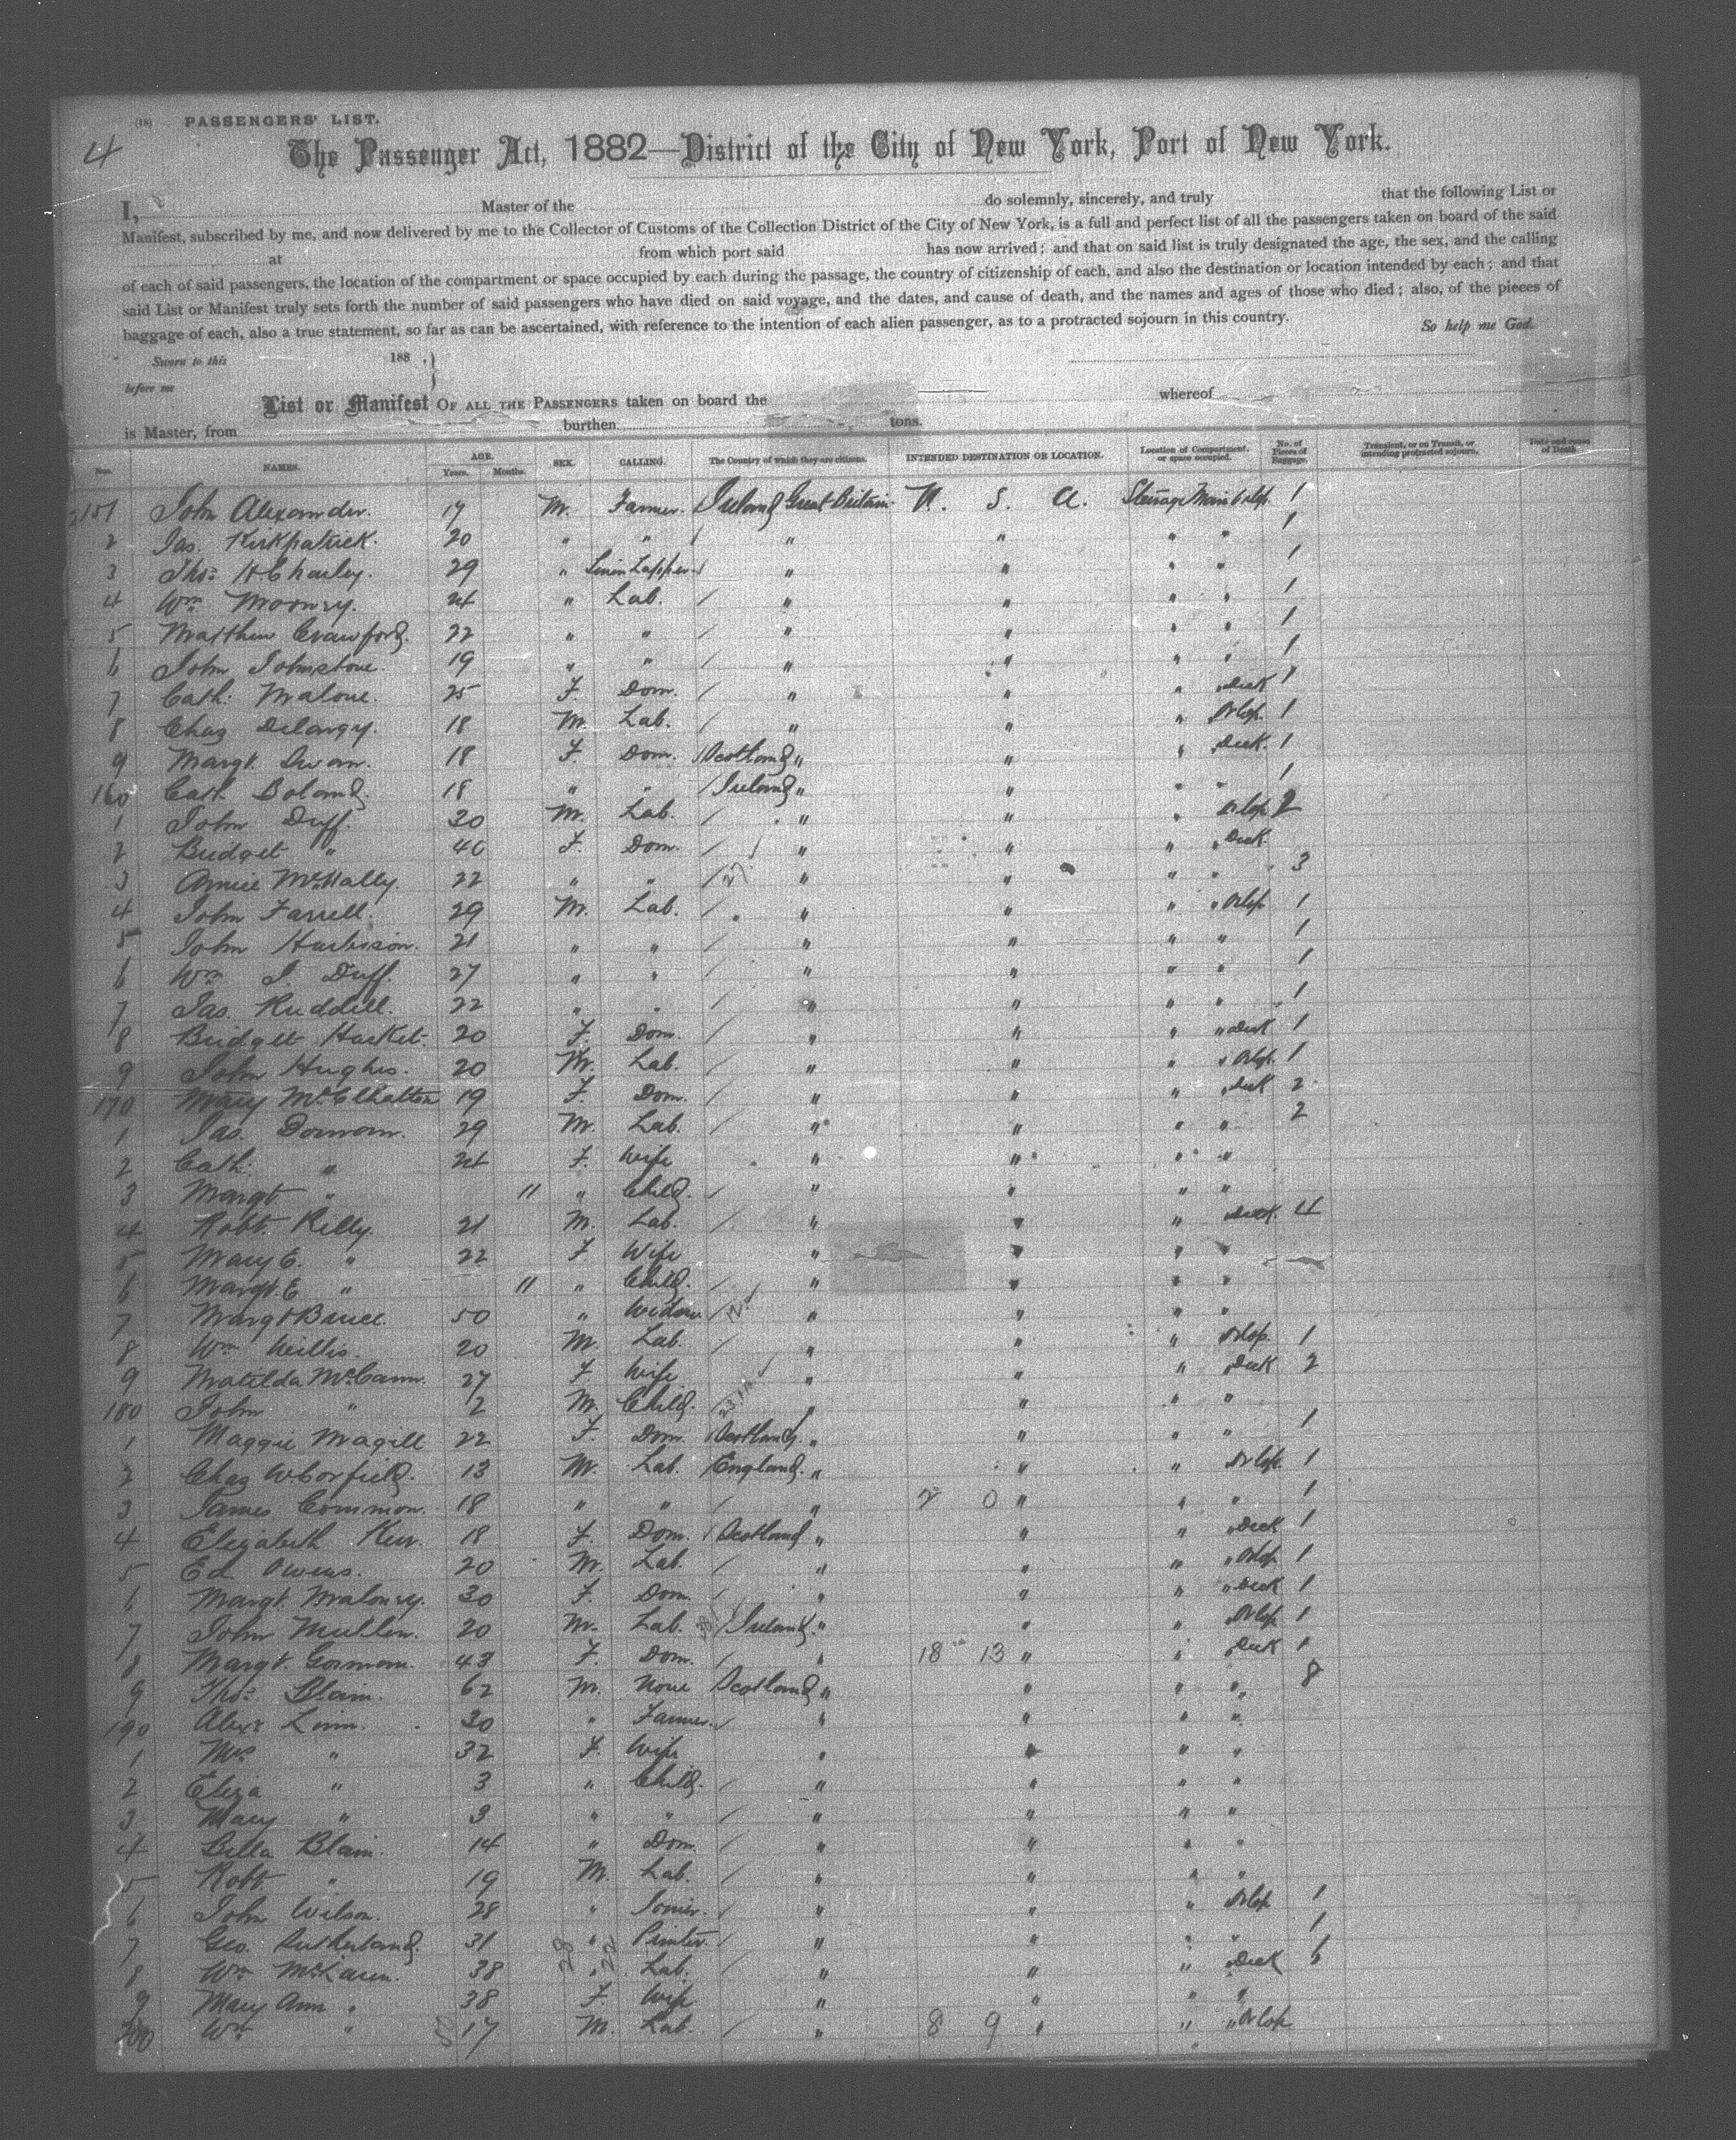 4
(18) PASSENGERS' LIST.
The Passenger Act, 1882—District of the City of New York, Port of New York.
I, Master of the do solemnly, sincerely, and truly that the following List or
Manifest, subscribed by me, and now delivered by me to the Collector of Customs of the Collection District of the City of New York, is a full and perfect list of all the passengers taken on board of the said
at from which port said has now arrived; and that on said list is truly designated the age, the sex, and the calling
of each of said passengers, the location of the compartment or space occupied by each during the passage, the country of citizenship of each, and also the destination or location intended by each; and that
said List or Manifest truly sets forth the number of said passengers who have died on said voyage, and the dates, and cause of death, and the names and ages of those who died; also, of the pieces of
baggage of each, also a true statement, so far as can be ascertained, with reference to the intention of each alien passenger, as to a protracted sojourn in this country. So help me God.
Sworn to this 188 .}
before me
List or Manifest OF ALL THE PASSENGERS taken on board the whereof
is Master, from burthen tons.
Nos. NAMES. AGE. Years. Months. SEX. CALLING. The Country of which they are citizens. INTENDED DESTINATION OR LOCATION. Location of Compartment, or space occupied. No. of Pieces of Baggage. Transient, or on Transit, or intending protracted sojourn. Date and cause of Death
151 John Alexander. 19 M. Farmer. Ireland Great Britain U. S. A. Steerage Main Orlop. 1
2 Jas. Kirkpatrick. 20 " " / " " " " 1
3 Thos. H Charley. 29 " Linen Lapper / " " " " 1
4 Wm Mooney. 24 " Lab. / " " " " 1
5 Matthew Crawford. 22 " " / " " " " 1
6 John Johnstone. 19 " " / " " " " 1
7 Cath. Malone. 25 F. Dom. / " " " Deck 1
8 Chas Delargy. 18 M. Lab. / " " " Orlop. 1
9 Margt. Swan. 18 F. Dom. / Scotland " " " Deck. 1
160 Cath. Boland. 18 " " / Ireland " " " " 1
1 John Duff. 30 M. Lab. / " " " Orlop 2
2 Bridget " 40 F. Dom. / " " " Deck.
3 Annie McNally. 22 " " / " " " " 3
4 John Farrell. 29 M. Lab. / " " " Orlop 1
5 John Harbison. 21 " " / " " " " 1
6 Wm J. Duff. 27 " " / " " " " 1
7 Jas. Ruddell. 22 " " / " " " " 1
8 Bridget Harket. 20 F. Dom. / " " " Deck 1
9 John Hughes. 20 M. Lab. / " " " Orlop. 1
170 Mary McElhatton 19 F. Dom. / " " " Deck 2
1 Jas. 29 M. Lab. / " " " " 2
2 Cath. " 24 F. Wife " " " "
3 Margt " 11 " Child. / " " " "
4 Robt. Kelly. 21 M. Lab. / " " " Deck. 4
5 Mary E. " 22 F. Wife " " " "
6 Margt. E " 11 " Child. / " " " "
7 Margt Bruce. 50 " Widow / " " " "
8 Wm Willis. 20 M. Lab. / " " " Orlop. 1
9 Matilda McCann. 27 F. Wife " " " Deck 2
180 John " 2 M. Child. " " " "
1 Maggie Magill 22 F. Dom. / Scotland. " " " " 1
2 Chas W Corfield. 13 M. Lab. / England. " " " Orlop. 1
3 James Common. 18 " " / " 2 0 " " " 1
4 Elizabeth Kerr. 18 F. Dom. / Scotland " " " Deck 1
5 Ed. Owens. 20 M. Lab. / " " " Orlop 1
6 Margt. Maloney. 30 F. Dom. / " " " Deck 1
7 John Mullen. 20 M. Lab. / Ireland. " " " Orlop 1
8 Margt. Gorman. 43 F. Dom. / " 18 13 " " Deck 1
9 Thos. Blain. 62 M. None Scotland " " " " 8
190 Alexr Linn. 30 " Farmer. / " " " "
1 Mrs " 32 F. Wife " " " "
2 Eliza " 3 " Child. / " " " "
3 Mary " 3 " " / " " " "
4 Bella Blain. 14 " Dom. / " " " "
5 Robt. " 19 M. Lab. / " " " "
6 John Wilson. 28 " Joiner. / " " " Orlop 1
7 Geo. Sutherland. 31 " Printer. / " " " " 1
8 Wm McLaren. 38 " Lab. / " " " Deck 6
9 Mary Ann " 38 F. Wife " " " "
200 Wm " 17 M. Lab. / " 8 9 " " Orlop